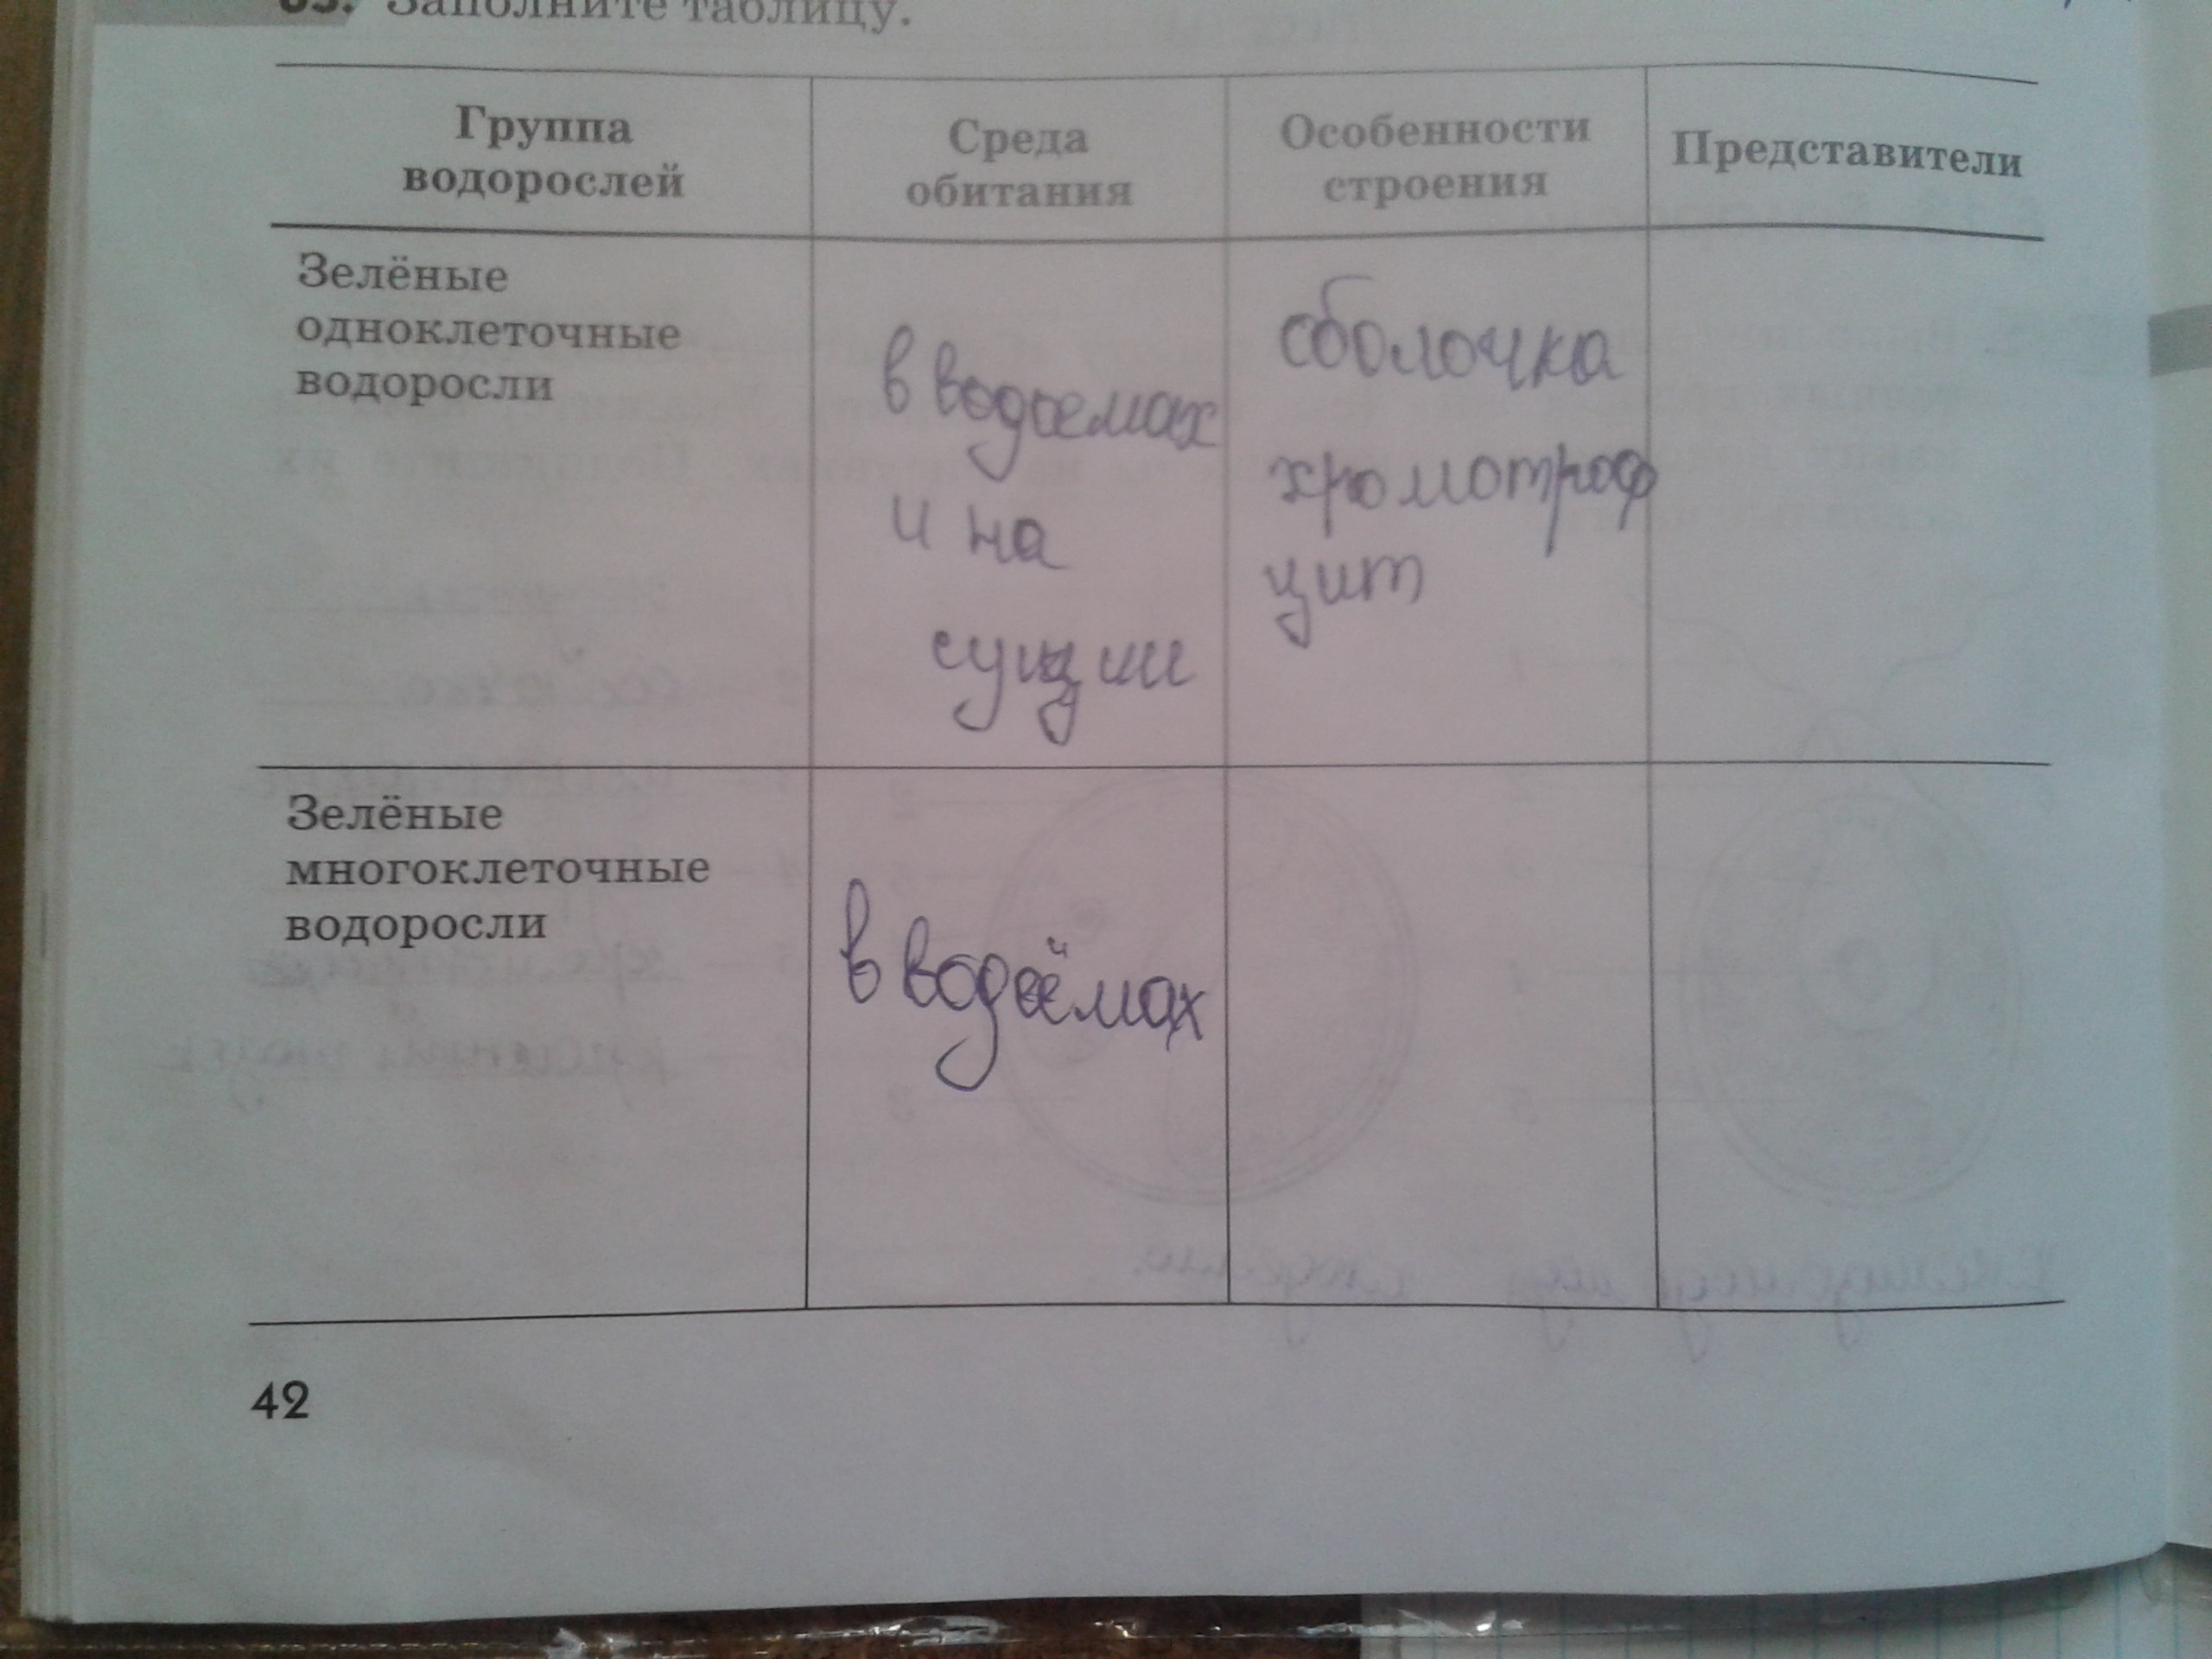 Заполните таблицу.
Группа
водорослей
Среда
обитания
Особенности
строения
Представители
Зелёные
одноклеточные
водоросли
в водоемах
и на
сущши
оболочка
хромотроф
цит
Зелёные
многоклеточные
водоросли
в водоёмах
42